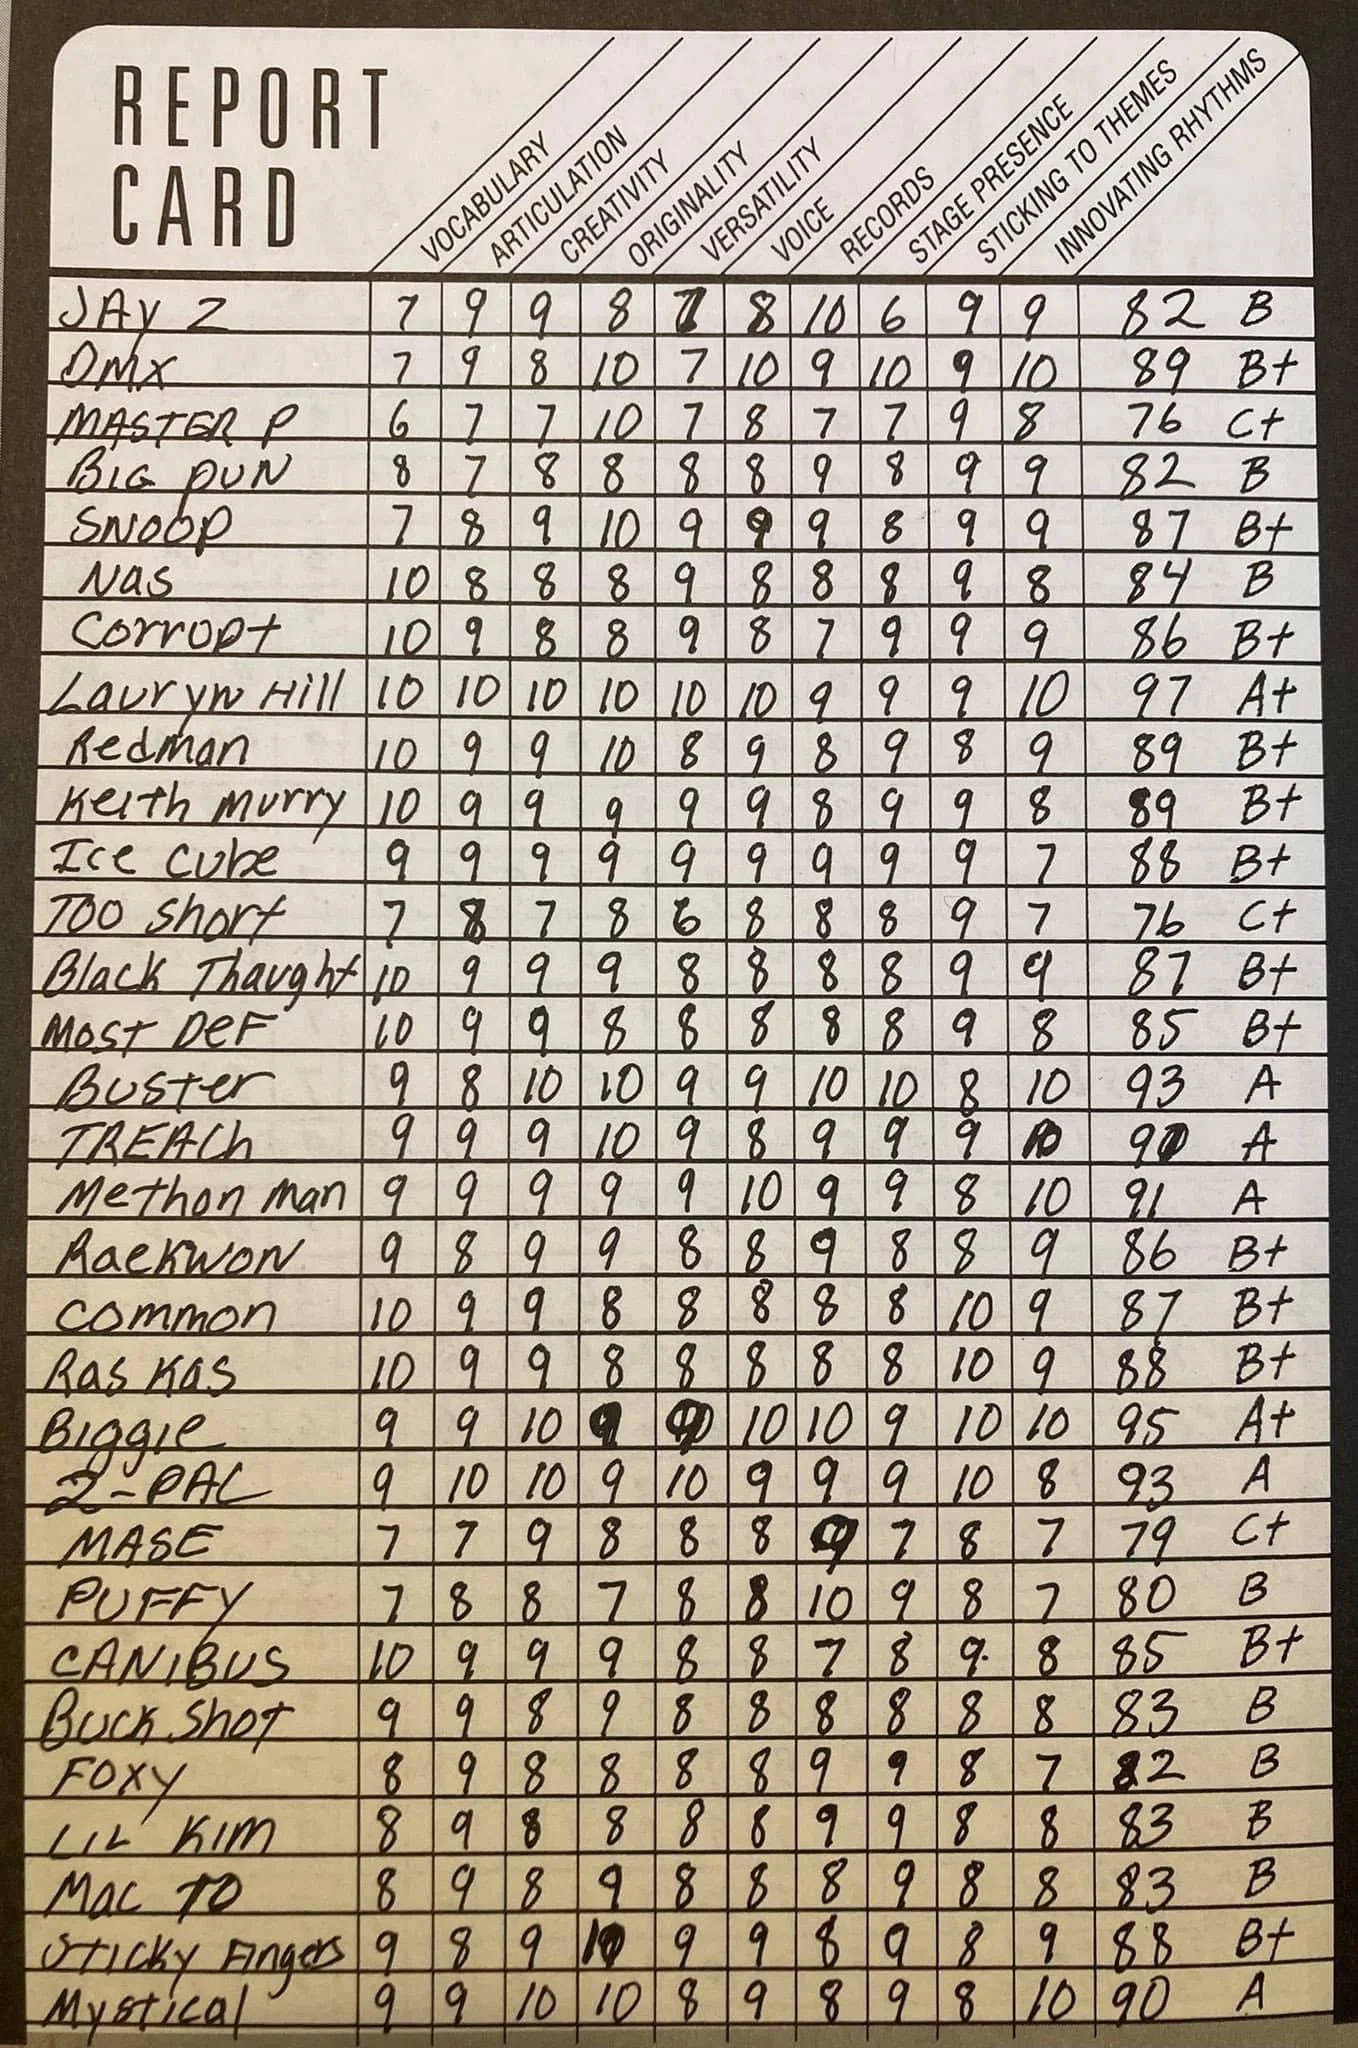 REPORT
CARD
VOCABULARY
ARTICULATION
CREATIVITY
ORIGINALITY
VERSATILITY
VOICE
RECORDS
STAGE PRESENCE
STICKING TO THEMES
INNOVATING RHYTHMS
JAY Z 7 9 9 8 7 8 10 6 9 9 82 B
DMX 7 9 8 10 7 10 9 10 9 10 89 B+
MASTER P 6 7 7 10 7 8 7 7 9 8 76 C+
BIG PUN 8 7 8 8 8 8 9 8 9 9 82 B
SNOOP 7 8 9 10 9 9 9 8 9 9 87 B+
Nas 10 8 8 8 9 8 8 8 9 8 84 B
Corrupt 10 9 8 8 9 8 7 9 9 9 86 B+
Lauryn Hill 10 10 10 10 10 10 9 9 9 10 97 A+
Redman 10 9 9 10 8 9 8 9 8 9 89 B+
Keith Murry 10 9 9 9 9 9 8 9 9 8 89 B+
Ice Cube 9 9 9 9 9 9 9 9 9 7 88 B+
TOO Short 7 8 7 8 6 8 8 8 9 7 76 C+
Black Thaught 10 9 9 9 8 8 8 8 9 9 87 B+
Most DeF 10 9 9 8 8 8 8 8 9 8 85 B+
Buster 9 8 10 10 9 9 10 10 8 10 93 A
TREACh 9 9 9 10 9 8 9 9 9 10 A
Methon Man 9 9 9 9 9 10 9 9 8 10 91 A
Raekwon 9 8 9 9 8 8 9 8 8 9 86 B+
common 10 9 9 8 8 8 8 8 10 9 87 B+
Ras Kas 10 9 9 8 8 8 8 8 10 9 88 B+
Biggie 9 9 10 9 10 10 9 10 10 95 A+
2-PAC 9 10 10 9 10 9 9 9 10 8 93 A
MASE 7 7 9 8 8 8 9 7 8 7 79 C+
PUFFY 7 8 8 7 8 8 10 9 8 7 80 B
CANIBUS 10 9 9 9 8 8 7 8 9 8 85 B+
Buck Shot 9 9 8 9 8 8 8 8 8 8 83 B
FOXY 8 9 8 8 8 8 9 9 8 7 82 B
LIL KIM 8 9 8 8 8 8 9 9 8 8 83 B
Mac 10 8 9 8 9 8 8 8 9 8 8 83 B
Sticky Fingers 9 8 9 10 9 9 8 9 8 9 88 B+
Mystical 9 9 10 10 8 9 8 9 8 10 90 A